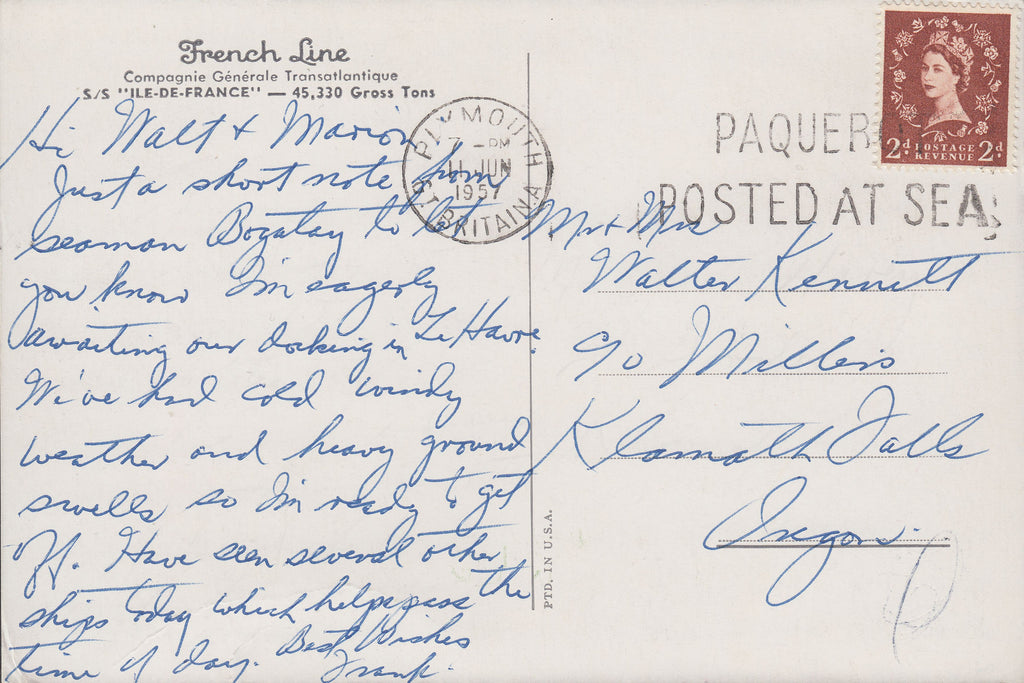 French Line
Compagnie Générale Transatlantique
S/S "ILE-DE-FRANCE" — 45,330 Gross Tons
Hi Walt + Marion
Just a short note from
seaman Bogatay to let
you know I'm eagerly
awaiting our docking in Le Havre.
We've had cold windy
weather and heavy ground
swells so I'm ready to get
off. Have seen several other
ships today which helps pass the
time of day. Best Wishes
Frank.
PLYMOUTH
7 - PM
11 JUN
1957
GT. BRITAIN
PAQUEB
POSTED AT SEA
2d POSTAGE REVENUE 2d
Mr + Mrs
Walter Kennett
c/o Millers
Klamath Falls
Oregon.
PTD. IN U.S.A.